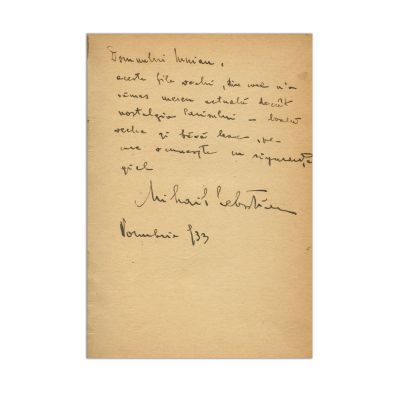 Domnului
aceste file vechi, din care n'a
rămas mereu actuală decât
nostalgia Parisului — boală
veche și fără leac, pe
care o cunoaște cu siguranță

Mihail Sebastian
Noembrie 933